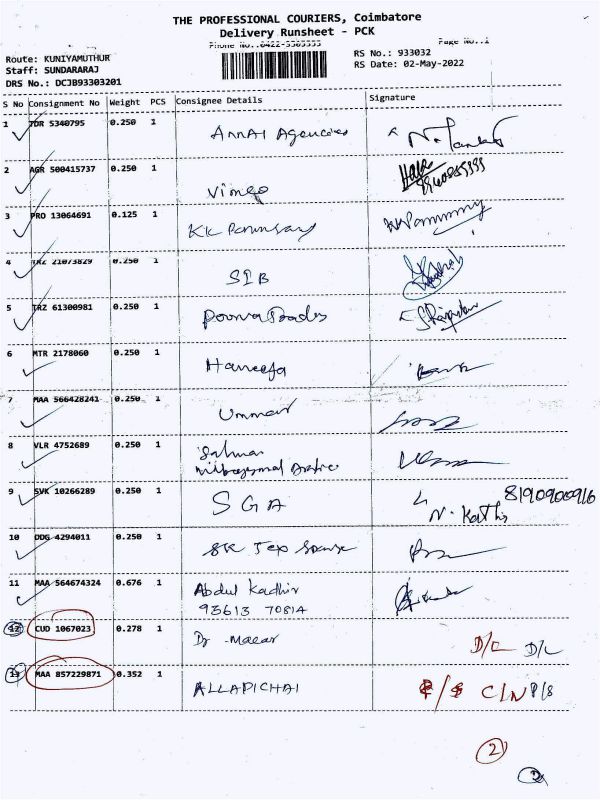 THE PROFESSIONAL COURIERS, Coimbatore
Delivery Runsheet - PCK
Phone No.:0422-3503333 Page No.:1
Route: KUNIYAMUTHUR RS No.: 933032
Staff: SUNDARARAJ RS Date: 02-May-2022
DRS No.: DCJB93303201
S No Consignment No Weight PCS Consignee Details Signature
1 TDR 5340795 0.250 1 Annai Agencies
2 AGR 500415737 0.250 1 Vimgo
3 PRO 13064691 0.125 1 KK
4 TRZ 21073829 0.250 1 SIB
5 TRZ 61300981 0.250 1 Poorva Trades
6 MTR 2178060 0.250 1 Haneefa
7 MAA 566428241 0.250 1 Ummar
8 VLR 4752689 0.250 1 Salman
9 SVK 10266289 0.250 1 SGA 8190900916
N. Kathir
10 DDG 4294011 0.250 1 SK Tex
11 MAA 564674324 0.676 1 Abdul Kadhir
93613 70814
12 CUD 1067023 0.278 1 Dr D/L D/L
13 MAA 857229871 0.352 1 ALLAPICHAI C/N P/S
2
2